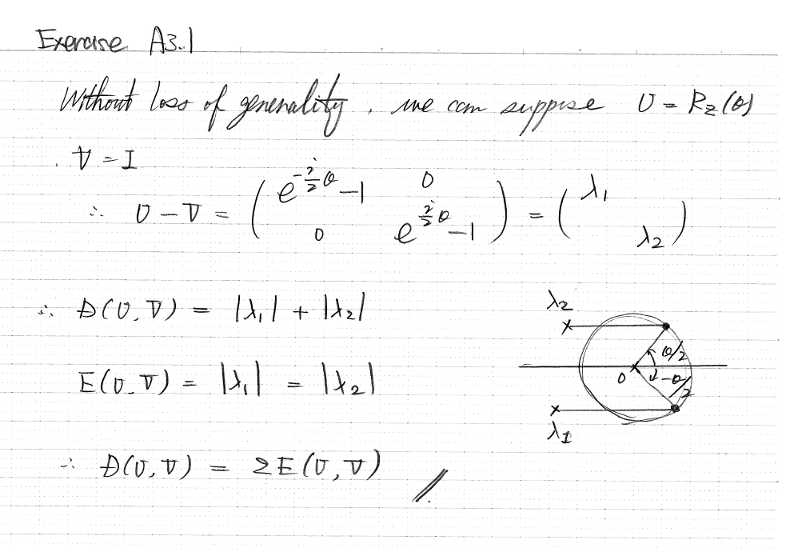 Exercise A3.1
Without loss of generality, we can suppose U = Rz(θ)
V = I
∴ U - V = ( e^{-i/2 θ} -1 0 0 e^{i/2 θ} -1 ) = ( λ1 λ2 )
∴ D(U, V) = |λ1| + |λ2|
E(U, V) = |λ1| = |λ2|
∴ D(U, V) = 2E(U, V)
λ2
θ/2
0
-θ/2
λ1